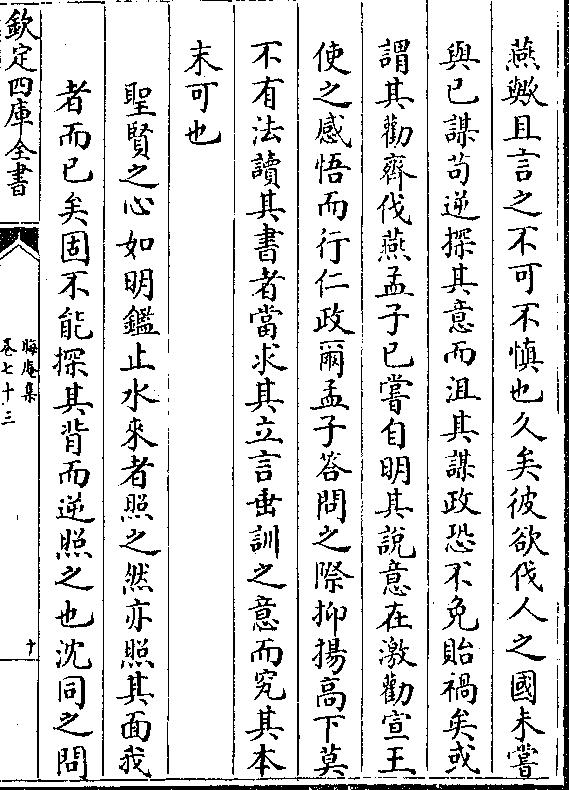 燕歟且言之不可不慎也久矣彼欲伐人之國未嘗
與已謀苟逆探其意而沮其謀政恐不免貽禍矣或
謂其勸齊伐燕孟子已嘗自明其說意在激勸宣王
使之感悟而行仁政爾孟子答問之際抑揚高下莫
不有法讀其書者當求其立言垂訓之意而究其本
末可也
聖賢之心如明鑑止水來者照之然亦照其面我
者而已矣固不能探其背而逆照之也沈同之問
欽定四庫全書
晦庵集
卷七十三
十